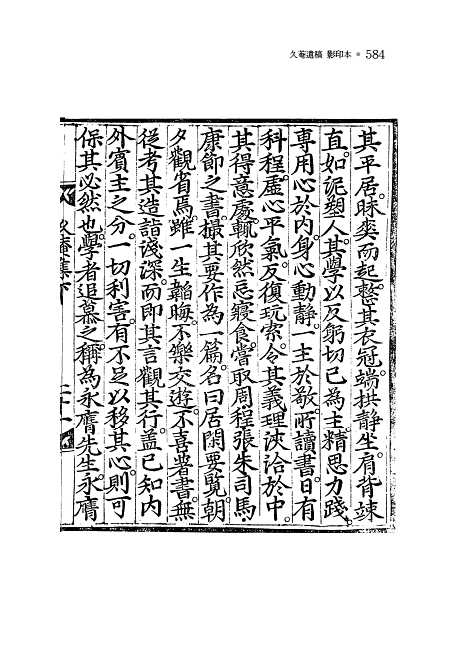 久菴遺稿 影印本 • 584
其平居。昧爽而起。整其衣冠。端拱静坐。肩背竦
直。如泥塑人。其學以反躬切已為主。精思力踐。
專用心於内。身心動静。一主於敬。所讀書。日有
科程。虛心平氣。反復玩索。令其義理浹洽於中。
其得意處。輒欣然忘寢食。嘗取周程張朱司馬
康節之書。撮其要作為一篇。名曰居閑要覽。朝
夕觀省焉。雖一生韜晦。不樂交遊。不喜著書。無
從考其造詣淺深。而即其言觀其行。盖已知内
外賓主之分。一切利害。有不足以移其心。則可
保其必然也。學者追慕之。稱為永膺先生。永膺